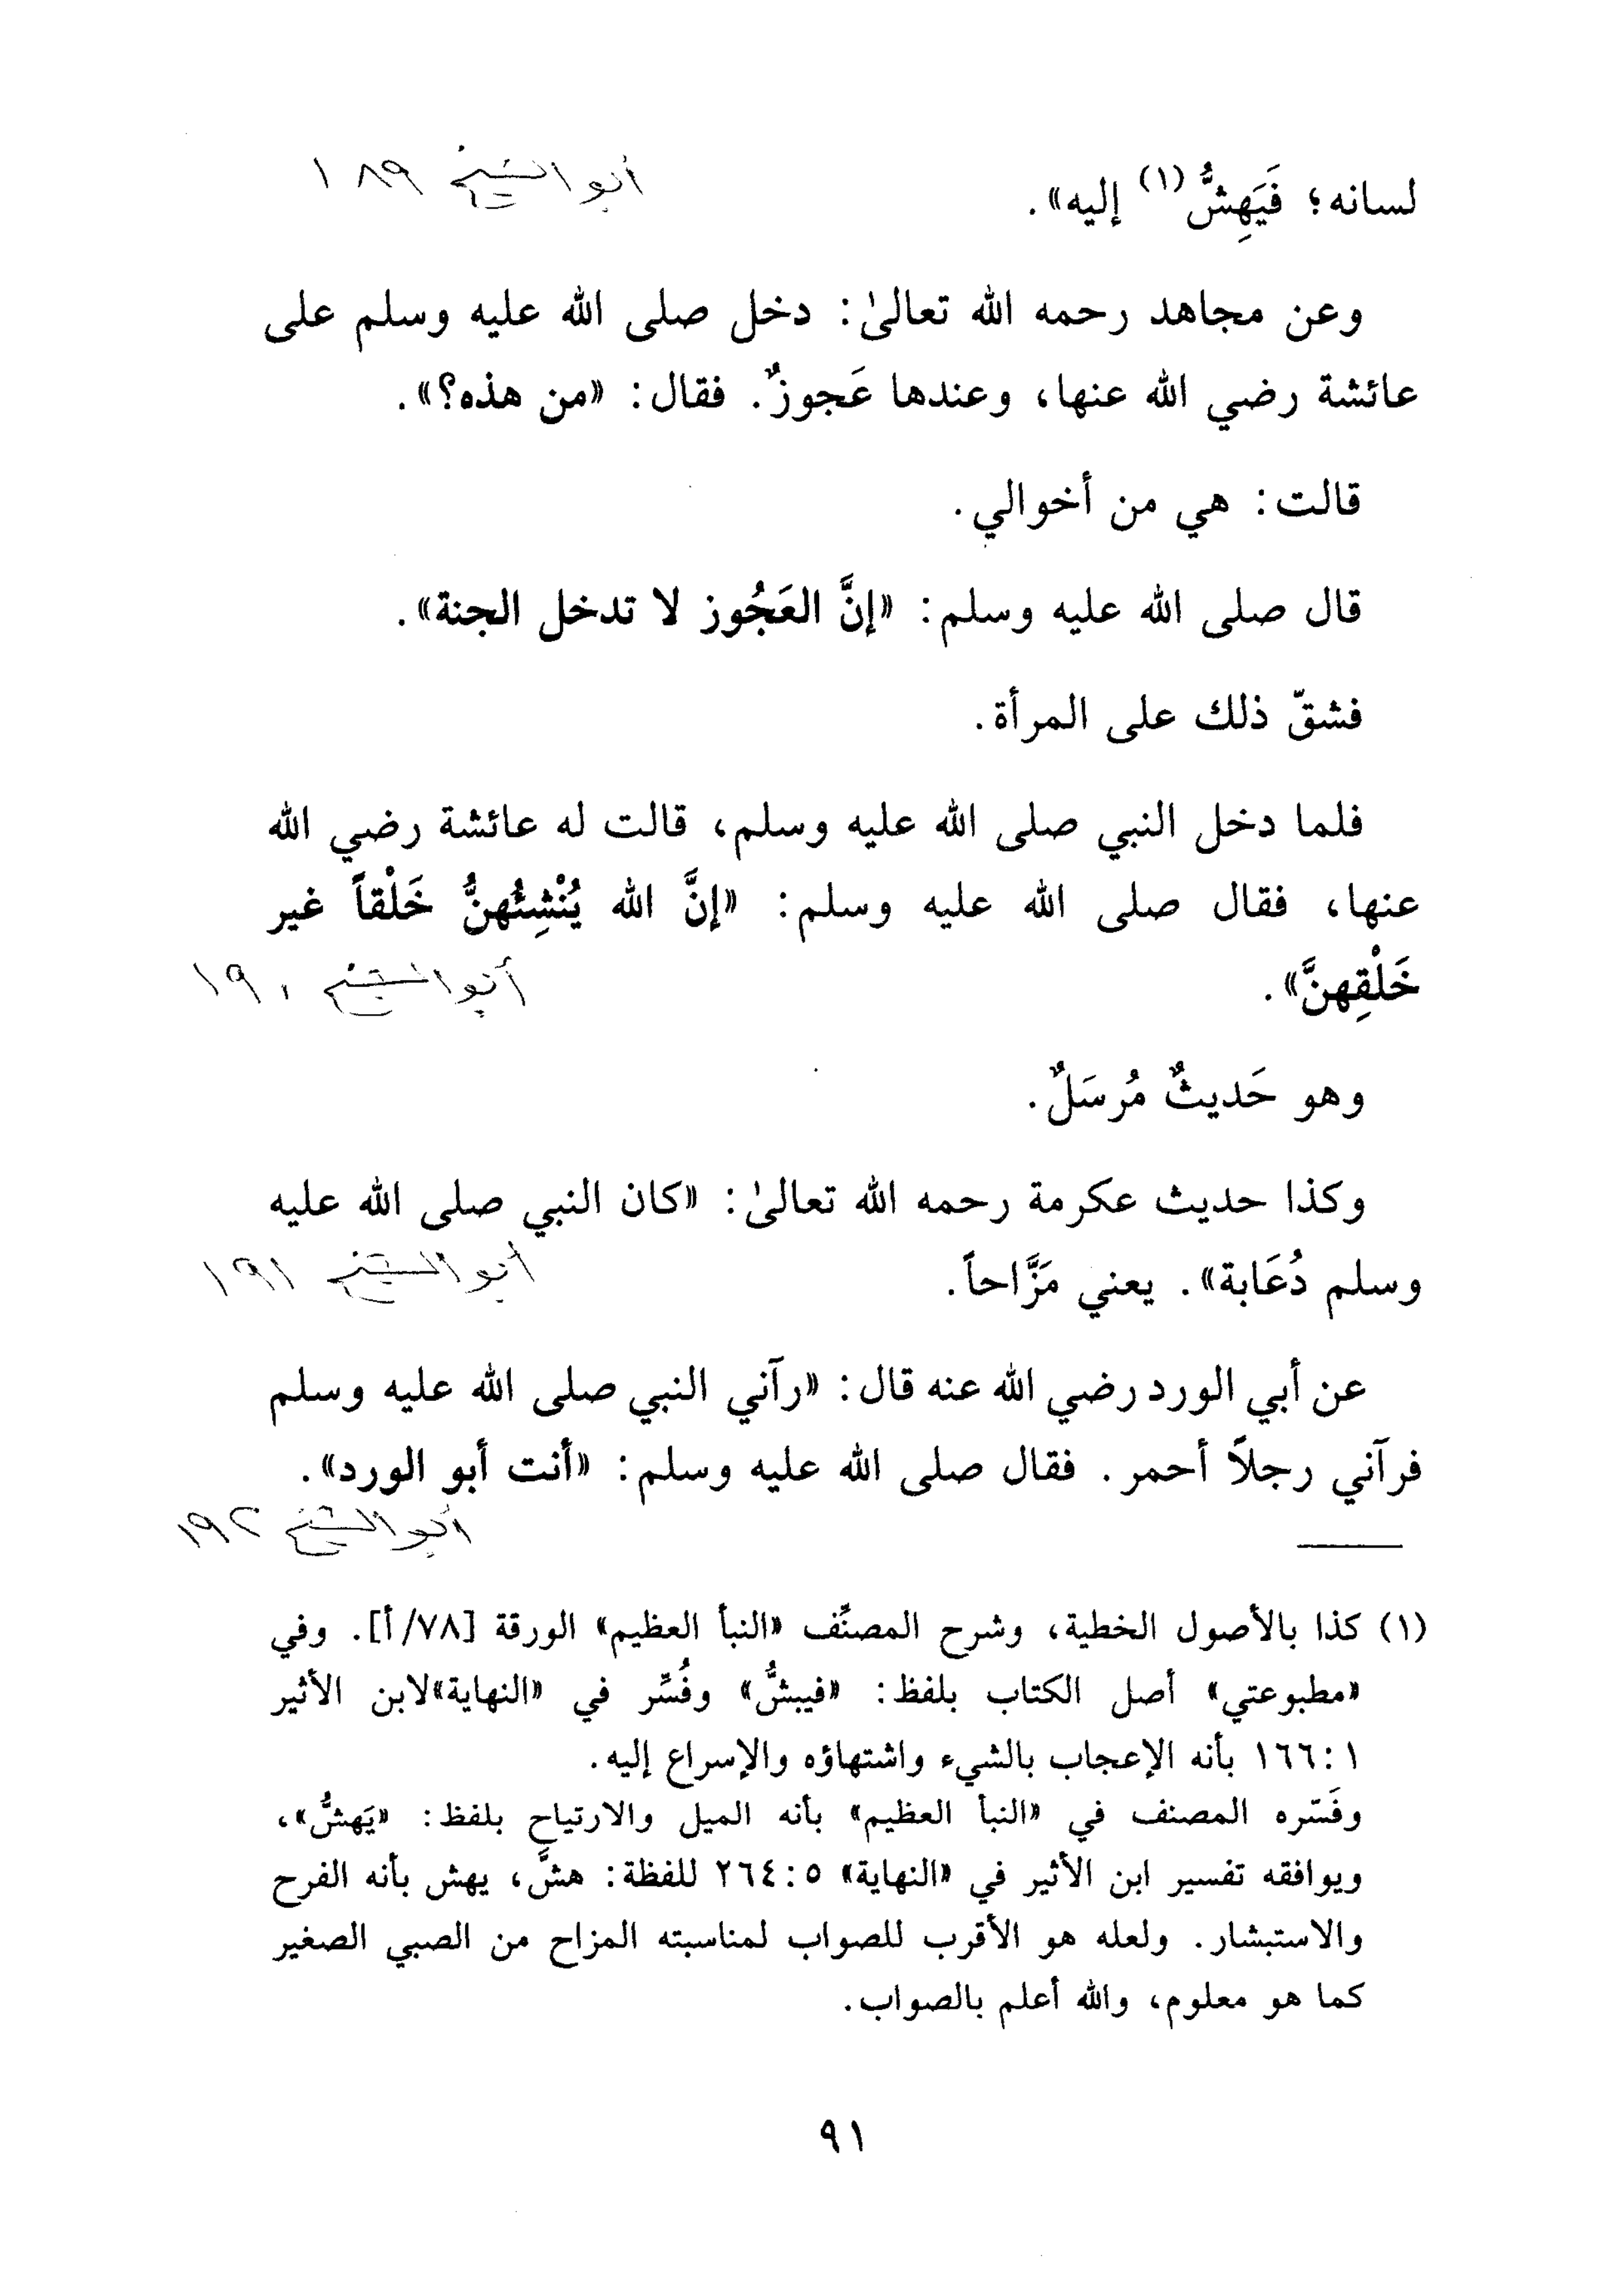 أبو الشيخ ١٨٩
لسانه؛ فَيَهِشُّ(١) إليه».
وعن مجاهد رحمه الله تعالىٰ: دخل صلى الله عليه وسلم على
عائشة رضي الله عنها، وعندها عَجوزٌ. فقال: «من هذه؟».
قالت: هي من أخوالي.
قال صلى الله عليه وسلم: «إنَّ العَجُوز لا تدخل الجنة».
فشقّ ذلك على المرأة.
فلما دخل النبي صلى الله عليه وسلم، قالت له عائشة رضي الله
عنها، فقال صلى الله عليه وسلم: «إنَّ الله يُنْشِئُهنَّ خَلْقاً غير
خَلْقِهنَّ».
أبو الشيخ ١٩٠
وهو حَديثٌ مُرسَلٌ.
وكذا حديث عكرمة رحمه الله تعالىٰ: «كان النبي صلى الله عليه
وسلم دُعَابة». يعني مَزَّاحاً.
أبو الشيخ ١٩١
عن أبي الورد رضي الله عنه قال: «رآني النبي صلى الله عليه وسلم
فرآني رجلاً أحمر. فقال صلى الله عليه وسلم: «أنت أبو الورد».
أبو الشيخ ١٩٢
(١) كذا بالأصول الخطية، وشرح المصنِّف «النبأ العظيم» الورقة [٧٨/أ]. وفي
«مطبوعتي» أصل الكتاب بلفظ: «فيبشُّ» وفُسِّر في «النهاية»لابن الأثير
١:١٦٦ بأنه الإعجاب بالشيء واشتهاؤه والإسراع إليه.
وفَسّره المصنف في «النبأ العظيم» بأنه الميل والارتياح بلفظ: «يَهشُّ»،
ويوافقه تفسير ابن الأثير في «النهاية» ٥:٢٦٤ للفظة: هشَّ، يهش بأنه الفرح
والاستبشار. ولعله هو الأقرب للصواب لمناسبته المزاح من الصبي الصغير
كما هو معلوم، والله أعلم بالصواب.
٩١